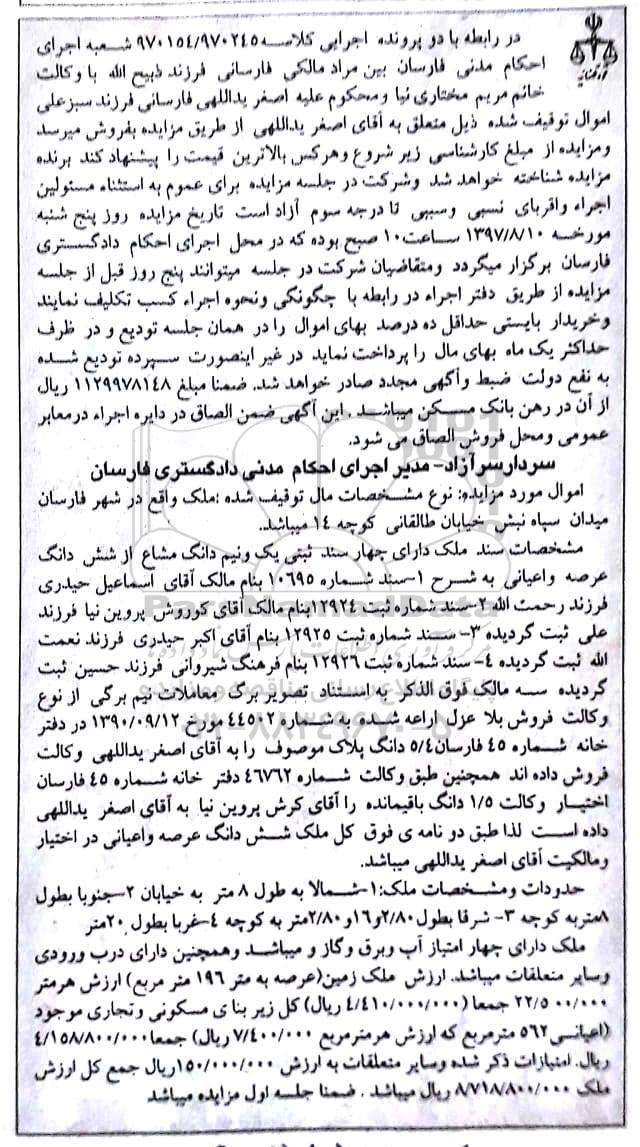 در رابطه با دو پرونده اجرایی کلاسه ۹۷۰۱۵۴/۹۷۰۲۴۵ شعبه اجرای
احکام مدنی فارسان بین مراد مالکی فارسانی فرزند ذبیح الله با وکالت
خانم مریم مختاری نیا و محکوم علیه اصغر یداللهی فارسانی فرزند سبزعلی
اموال توقیف شده ذیل متعلق به آقای اصغر یداللهی از طریق مزایده بفروش میرسد
ومزایده از مبلغ کارشناسی زیر شروع وهرکس بالاترین قیمت را پیشنهاد کند برنده
مزایده شناخته خواهد شد وشرکت در جلسه مزایده برای عموم به استثناء مسئولین
اجراء واقربای نسبی وسببی تا درجه سوم آزاد است تاریخ مزایده روز پنج شنبه
مورخه ۱۳۹۷/۸/۱۰ ساعت ۱۰ صبح بوده که در محل اجرای احکام دادگستری
فارسان برگزار میگردد ومتقاضیان شرکت در جلسه میتوانند پنج روز قبل از جلسه
مزایده از طریق دفتر اجراء در رابطه با چگونگی ونحوه اجراء کسب تکلیف نمایند
وخریدار بایستی حداقل ده درصد بهای اموال را در همان جلسه تودیع و در ظرف
حداکثر یک ماه بهای مال را پرداخت نماید در غیر اینصورت سپرده تودیع شده
به نفع دولت ضبط وآگهی مجدد صادر خواهد شد. ضمنا مبلغ ۱۱۲۹۹۷۸۱۴۸ ریال
از آن در رهن بانک مسکن میباشد . این آگهی ضمن الصاق در دایره اجراء درمعابر
عمومی ومحل فروش الصاق می شود.
سردارسرآزاد- مدیر اجرای احکام مدنی دادگستری فارسان
اموال مورد مزایده: نوع مشخصات مال توقیف شده :ملک واقع در شهر فارسان
میدان سپاه نبش خیابان طالقانی کوچه ۱۴ میباشد.
مشخصات سند ملک دارای چهار سند ثبتی یک ونیم دانگ مشاع از شش دانگ
عرصه واعیانی به شرح ۱-سند شماره ۱۰۶۹۵ بنام مالک آقای اسماعیل حیدری
فرزند رحمت الله ۲-سند شماره ثبت ۱۲۹۲۴بنام مالک آقای کوروش پروین نیا فرزند
علی ثبت گردیده ۳- سند شماره ثبت ۱۲۹۲۵ بنام آقای اکبر حیدری فرزند نعمت
الله ثبت گردیده ۴- سند شماره ثبت ۱۲۹۲۶ بنام فرهنگ شیروانی فرزند حسین ثبت
گردیده سه مالک فوق الذکر به استناد تصویر برگ معاملات نیم برگی از نوع
وکالت فروش بلا عزل اراعه شده به شماره ۴۴۵۰۲ مورخ ۱۳۹۰/۰۹/۱۲ در دفتر
خانه شماره ۴۵ فارسان۵/۴ دانگ پلاک موصوف را به آقای اصغر یداللهی وکالت
فروش داده اند همچنین طبق وکالت شماره ۴۶۷۶۲ دفتر خانه شماره ۴۵ فارسان
اختیار وکالت ۱/۵ دانگ باقیمانده را آقای کرش پروین نیا به آقای اصغر یداللهی
داده است لذا طبق دو نامه ی فوق کل ملک شش دانگ عرصه واعیانی در اختیار
ومالکیت آقای اصغر یداللهی میباشد.
حدودات ومشخصات ملک:۱-شمالا به طول ۸ متر به خیابان ۲-جنوبا بطول
۸متربه کوچه ۳- شرقا بطول۲/۸۰و۱۶و۲/۸۰متر به کوچه ۴-غربا بطول ۲۰متر
ملک دارای چهار امتیاز آب وبرق وگاز و میباشد وهمچنین دارای درب ورودی
وسایر متعلقات میباشد. ارزش ملک زمین(عرصه به متر ۱۹۶ متر مربع) ارزش هرمتر
۲۲/۵۰۰/۰۰۰ جمعا (۴/۴۱۰/۰۰۰/۰۰۰ ریال) کل زیر بنای مسکونی وتجاری موجود
(اعیانی۵۶۲ مترمربع که ارزش هرمترمربع ۷/۴۰۰/۰۰۰ ریال) جمعا۴/۱۵۸/۸۰۰/۰۰۰
ریال. امتیازات ذکر شده وسایر متعلقات به ارزش ۱۵۰/۰۰۰/۰۰۰ریال جمع کل ارزش
ملک ۸/۷۱۸/۸۰۰/۰۰۰ ریال میباشد . ضمنا جلسه اول مزایده میباشد